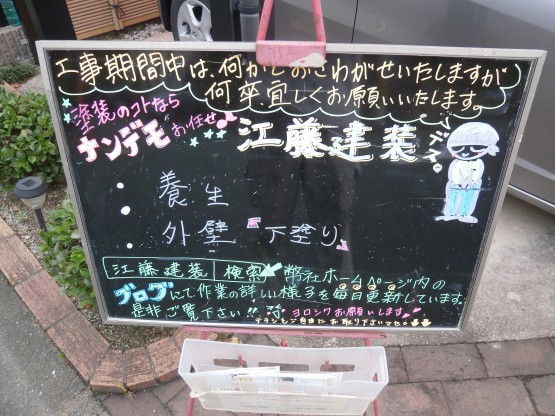 工事期間中は、何かとおさわがせいたしますが
何卒、宜しくお願いいたします。
塗装のコトなら
ナンデモお任せ
江藤建装
養生
外壁 『下塗り』
江藤建装 検索 弊社ホームページ内の
ブログにて作業の詳しい様子を毎日更新しています。
是非ご覧下さい!! ヨロシクお願いします
チラシもご自由にお取り下さいませ。